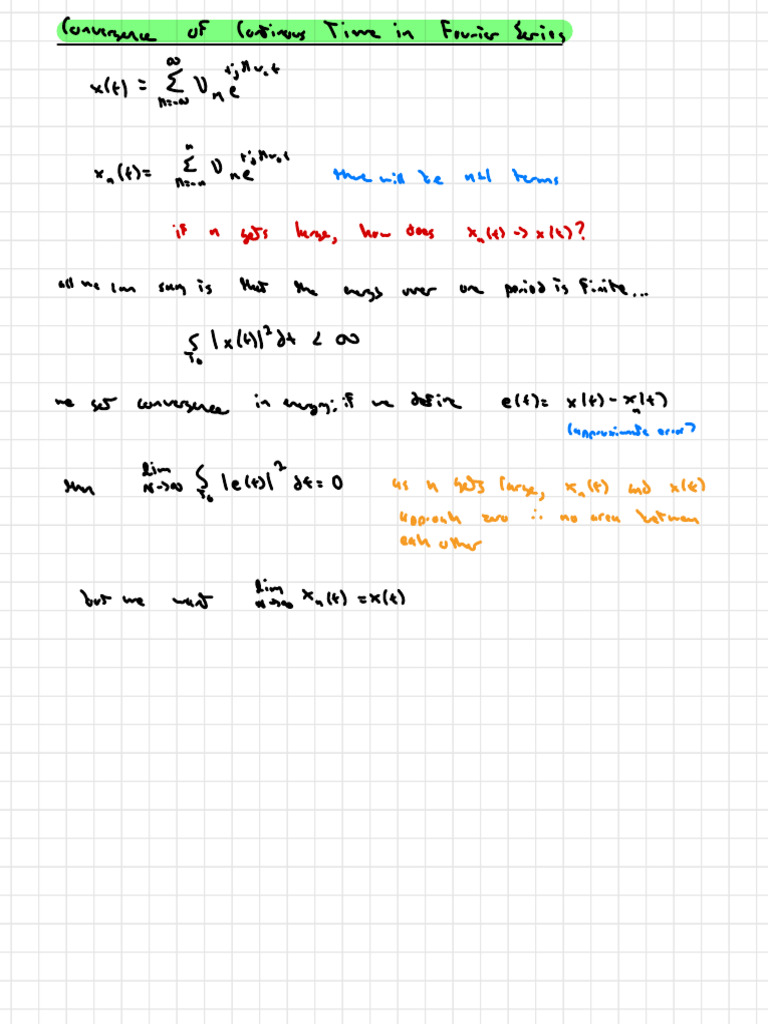 Convergence of Continous Time in Fourier Series
x(t) = ∑_{n=-∞}^{∞} D_n e^{+jnω₀t}
x_n(t) = ∑_{n=-n}^{n} D_n e^{+jnω₀t} there will be n+1 terms
if n gets large, how does x_n(t) -> x(t)?
all we can say is that the energy over one period is finite...
∫_{T₀} |x(t)|² dt < ∞
we get convergence in energy; if we define e(t) = x(t) - x_n(t)
(approximate error)
then lim_{n->∞} ∫_{T₀} |e(t)|² dt = 0 as n gets large, x_n(t) and x(t)
approach zero ∴ no area between
each other
but we want lim_{n->∞} x_n(t) = x(t)